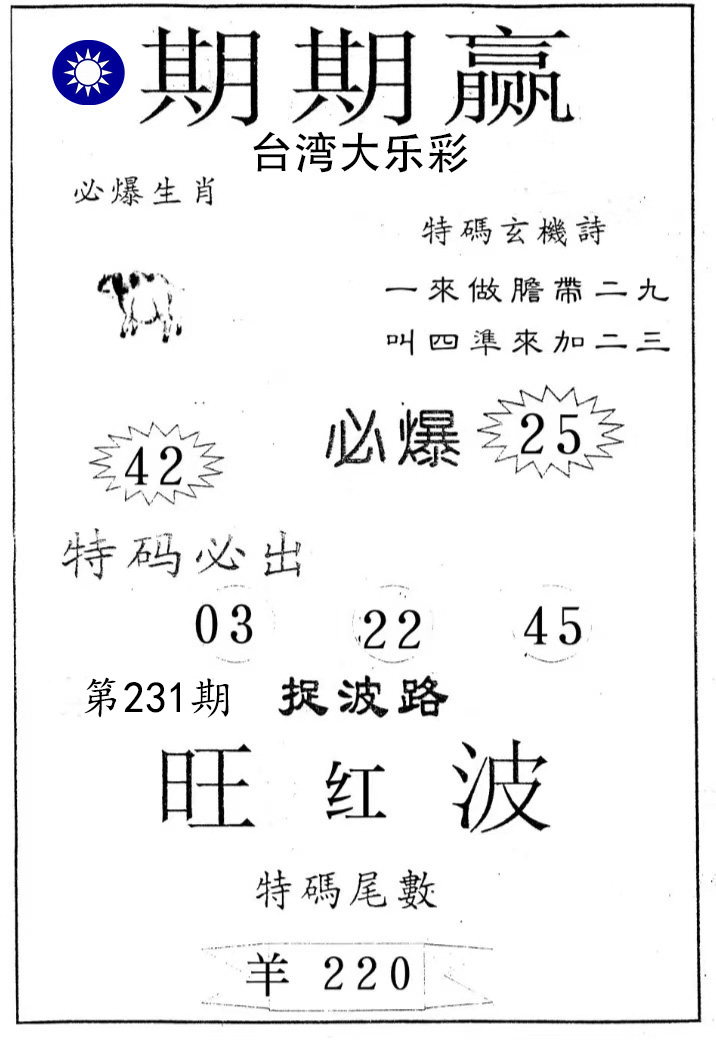 期期赢
台湾大乐彩
必爆生肖
特碼玄機詩
一來做膽帶二九
叫四準來加二三
42
必爆 25
特码必出
03 22 45
第231期 捉波路
旺红波
特碼尾數
羊 220